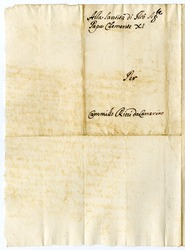 Alla Santità di Nro Sigre
Papa Clemente XI
Per
Cammillo Ricci da Camerino